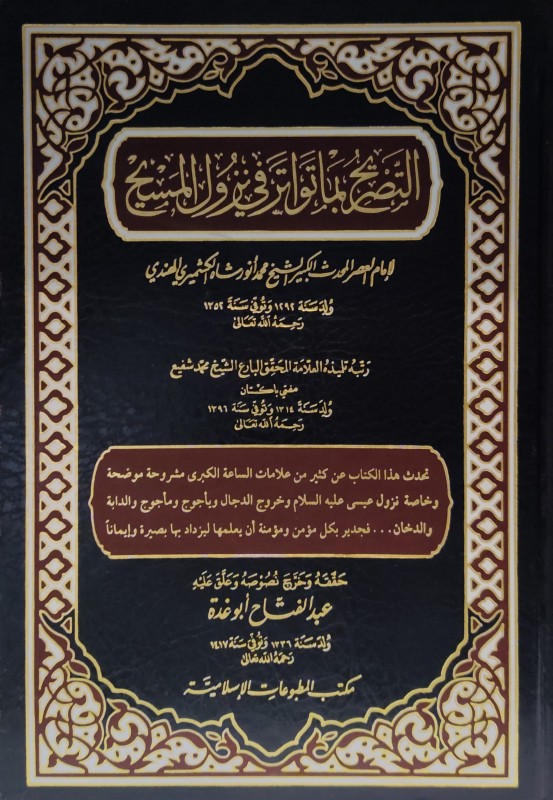 التَّصْرِيحُ بِمَا تَوَاتَرَ فِي نُزُولِ الْمَسِيحِ
لإمام العصر المحدث الكبير الشيخ محمد أنور شاه الكشميري الهندي
وُلِدَ سَنَة ١٢٩٢ وَتُوُفِّيَ سَنَةَ ١٣٥٢
رَحِمَهُ اللَّه تَعَالَى
رَتَّبَهُ تلميذهُ العلّامة المحقّق البارع الشيخ محمّد شفيع
مفتي باكستان
وُلِدَ سَنَةَ ١٣١٤ وَتُوُفِّيَ سَنَة ١٣٩٦
رَحِمَهُ اللَّه تَعَالَى
تحدث هذا الكتاب عن كثير من علامات الساعة الكبرى مشروحة موضحة
وخاصة نزول عيسى عليه السلام وخروج الدجال ويأجوج ومأجوج والدابة
والدخان . . . فجدير بكل مؤمن ومؤمنة أن يعلمها ليزداد بها بصيرة وإيماناً
حَقَّقَهُ وَخَرَّجَ نُصُوصَهُ وَعَلَّقَ عَلَيْهِ
عبد الفتّاح أبو غدة
وُلِدَ سَنَة ١٣٣٦ وَتُوُفِّيَ سَنَة ١٤١٧
رَحِمَهُ اللَّه تَعَالَى
مكتب المطبوعات الإسلاميّة